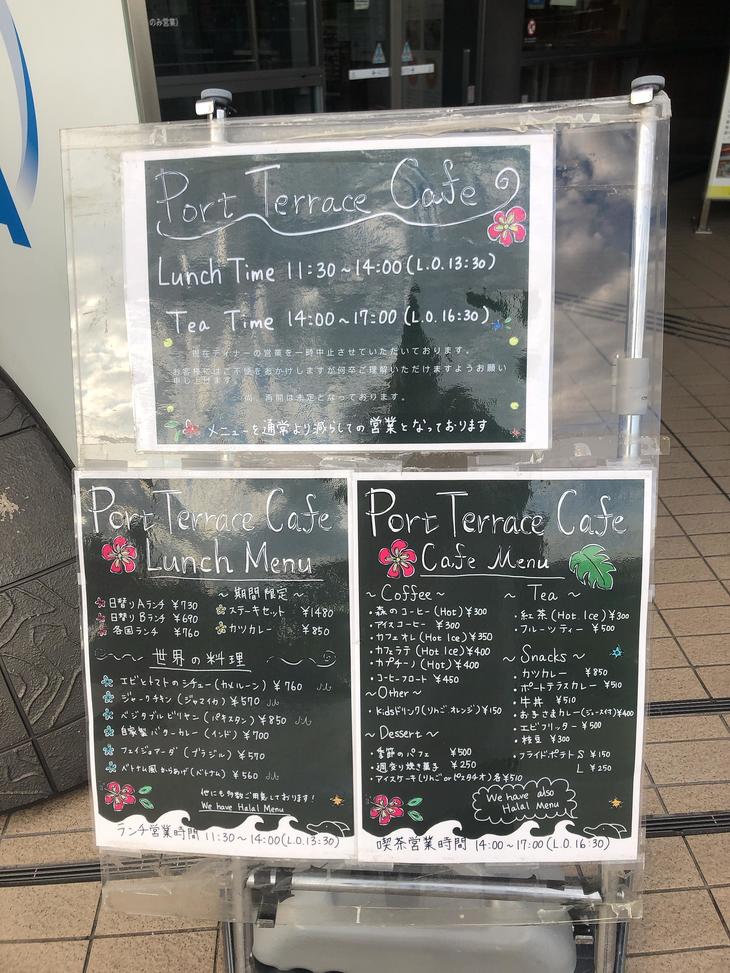 のみ営業)
Port Terrace Cafe
Lunch Time 11:30~14:00(L.O.13:30)
Tea Time 14:00~17:00(L.O.16:30)
現在ディナーの営業を一時中止させていただいております。
お客様にはご不便をおかけしますが何卒ご理解いただけますようお願い
申し上げます。
尚、再開は未定となっております。
メニューを通常より減らしての営業となっております
Port Terrace Cafe
Lunch Menu
日替りAランチ ¥730
日替りBランチ ¥690
各国ランチ ¥760
~期間限定~
ステーキセット ¥1480
カツカレー ¥850
世界の料理
エビとトマトのシチュー(カメルーン) ¥760
ジャークチキン(ジャマイカ) ¥570
ベジタブルビリヤン(パキスタン) ¥850
自家製バターカレー(インド) ¥700
フェイジョアーダ(ブラジル) ¥570
ベトナム風からあげ(ベトナム) ¥560
他にも多数ご用意しております!
We have Halal Menu
ランチ営業時間 11:30~14:00(L.O.13:30)
Port Terrace Cafe
Cafe Menu
~Coffee~
・森のコーヒー(Hot) ¥300
・アイスコーヒー ¥300
・カフェオレ(Hot Ice) ¥350
・カフェラテ(Hot Ice) ¥400
・カプチーノ(Hot) ¥400
・コーヒーフロート ¥450
~Other~
・Kidsドリンク(りんごオレンジ) ¥150
~Dessert~
・季節のパフェ ¥500
・週変り焼き菓子 ¥250
・アイスケーキ(りんごorピスタチオ)各¥510
~Tea~
・紅茶(Hot Ice) ¥300
・フルーツティー ¥500
~Snacks~
・カツカレー ¥850
・ポートテラスカレー ¥510
・牛丼 ¥510
・おこさまカレー(ジュース付) ¥400
・エビフリッター ¥500
・枝豆 ¥300
・フライドポテト S ¥150
L ¥250
We have also
Halal Menu
喫茶営業時間 14:00~17:00(L.O.16:30)